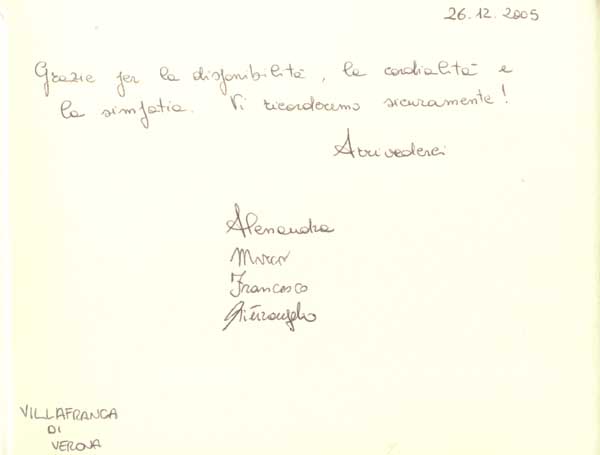 26.12.2005
Grazie per la disponibilità, la cordialità e
la simpatia. Vi ricorderemo sicuramente!
Arrivederci
Alessandra
Marco
Francesco
Pierangelo
VILLAFRANCA
DI
VERONA